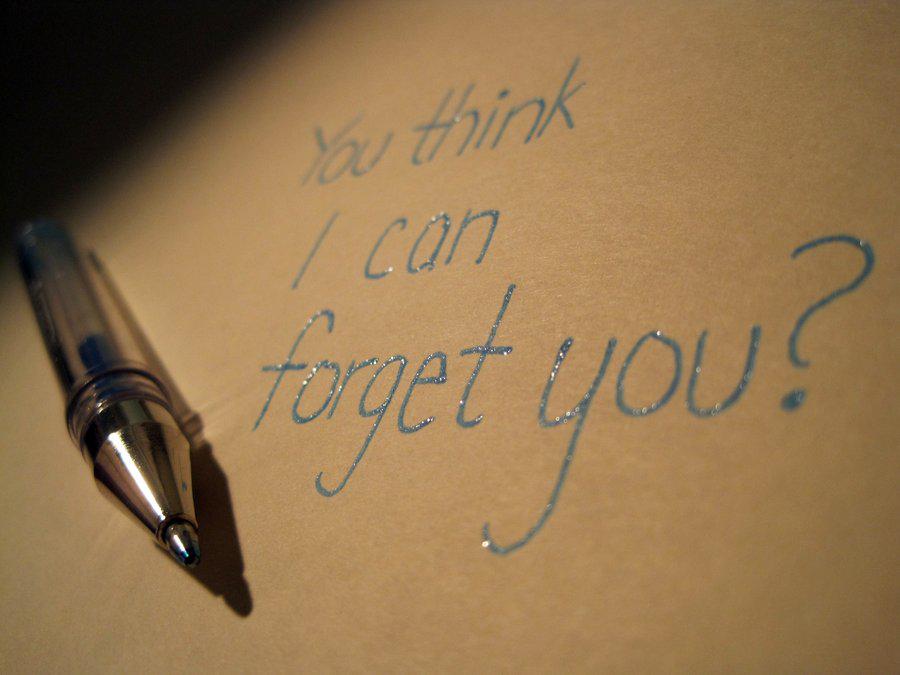 You think
I can
forget you?